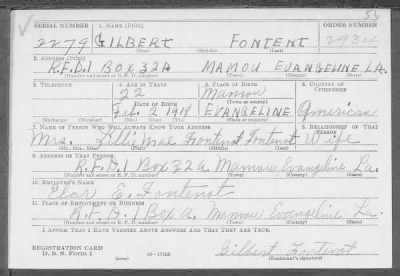 56
SERIAL NUMBER 1. NAME (Print) ORDER NUMBER
2279 GILBERT FONTENT 2934
(First) (Middle) (Last)
2. ADDRESS (Print)
R.F.D.1 BOX 32A MAMOU EVANGELINE LA.
(Number and street or R. F. D. number) (Town) (County) (State)
3. TELEPHONE 4. AGE IN YEARS 5. PLACE OF BIRTH 6. COUNTRY OF CITIZENSHIP
22 Mamou
DATE OF BIRTH (Town or county)
Feb. 2 1918 EVANGELINE American
(Mo.) (Day) (Yr.) (State or country)
7. NAME OF PERSON WHO WILL ALWAYS KNOW YOUR ADDRESS 8. RELATIONSHIP OF THAT PERSON
Mrs. Lilly Mae Fontenot Fontenot Wife
(Mr., Mrs., Miss) (First) (Middle) (Last)
9. ADDRESS OF THAT PERSON
R.F.D.1 Box 32a Mamou Evangeline La.
(Number and street or R. F. D. number) (Town) (County) (State)
10. EMPLOYER'S NAME
E. Fontenot
11. PLACE OF EMPLOYMENT OR BUSINESS
R.F.D.1 Box a. Mamou Evangeline La.
(Number and street or R. F. D. number) (Town) (County) (State)
I AFFIRM THAT I HAVE VERIFIED ABOVE ANSWERS AND THAT THEY ARE TRUE.
REGISTRATION CARD
D. S. S. Form 1 (over) Gilbert Fontenot
(Registrant's signature)